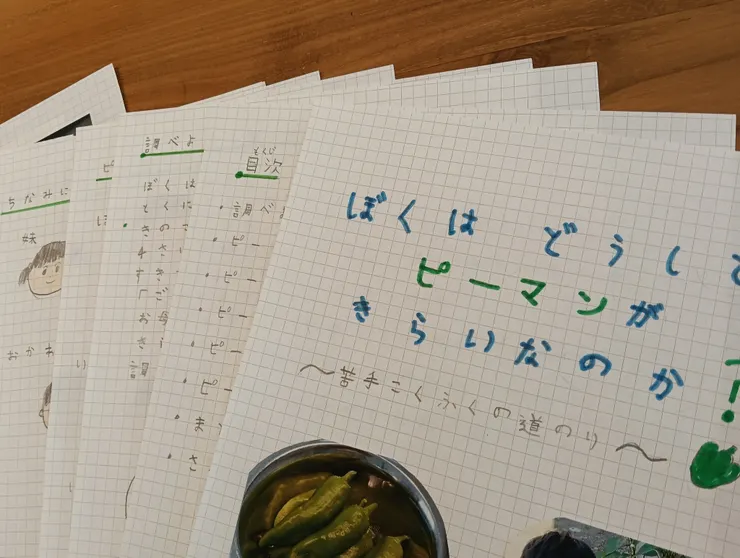 ぼくは どうして
ピーマンが
きらいなのか
!
～苦手こくふくの道のり～
もくじ
目次
・調べ
・ピー
・ピー
・ピー
・ピー
・ピー
・ま
・さ
調べよ
ぼくは
とくに
きのさ
すき
「ご
お母
調
ピ
ちなみに
妹
おかあ